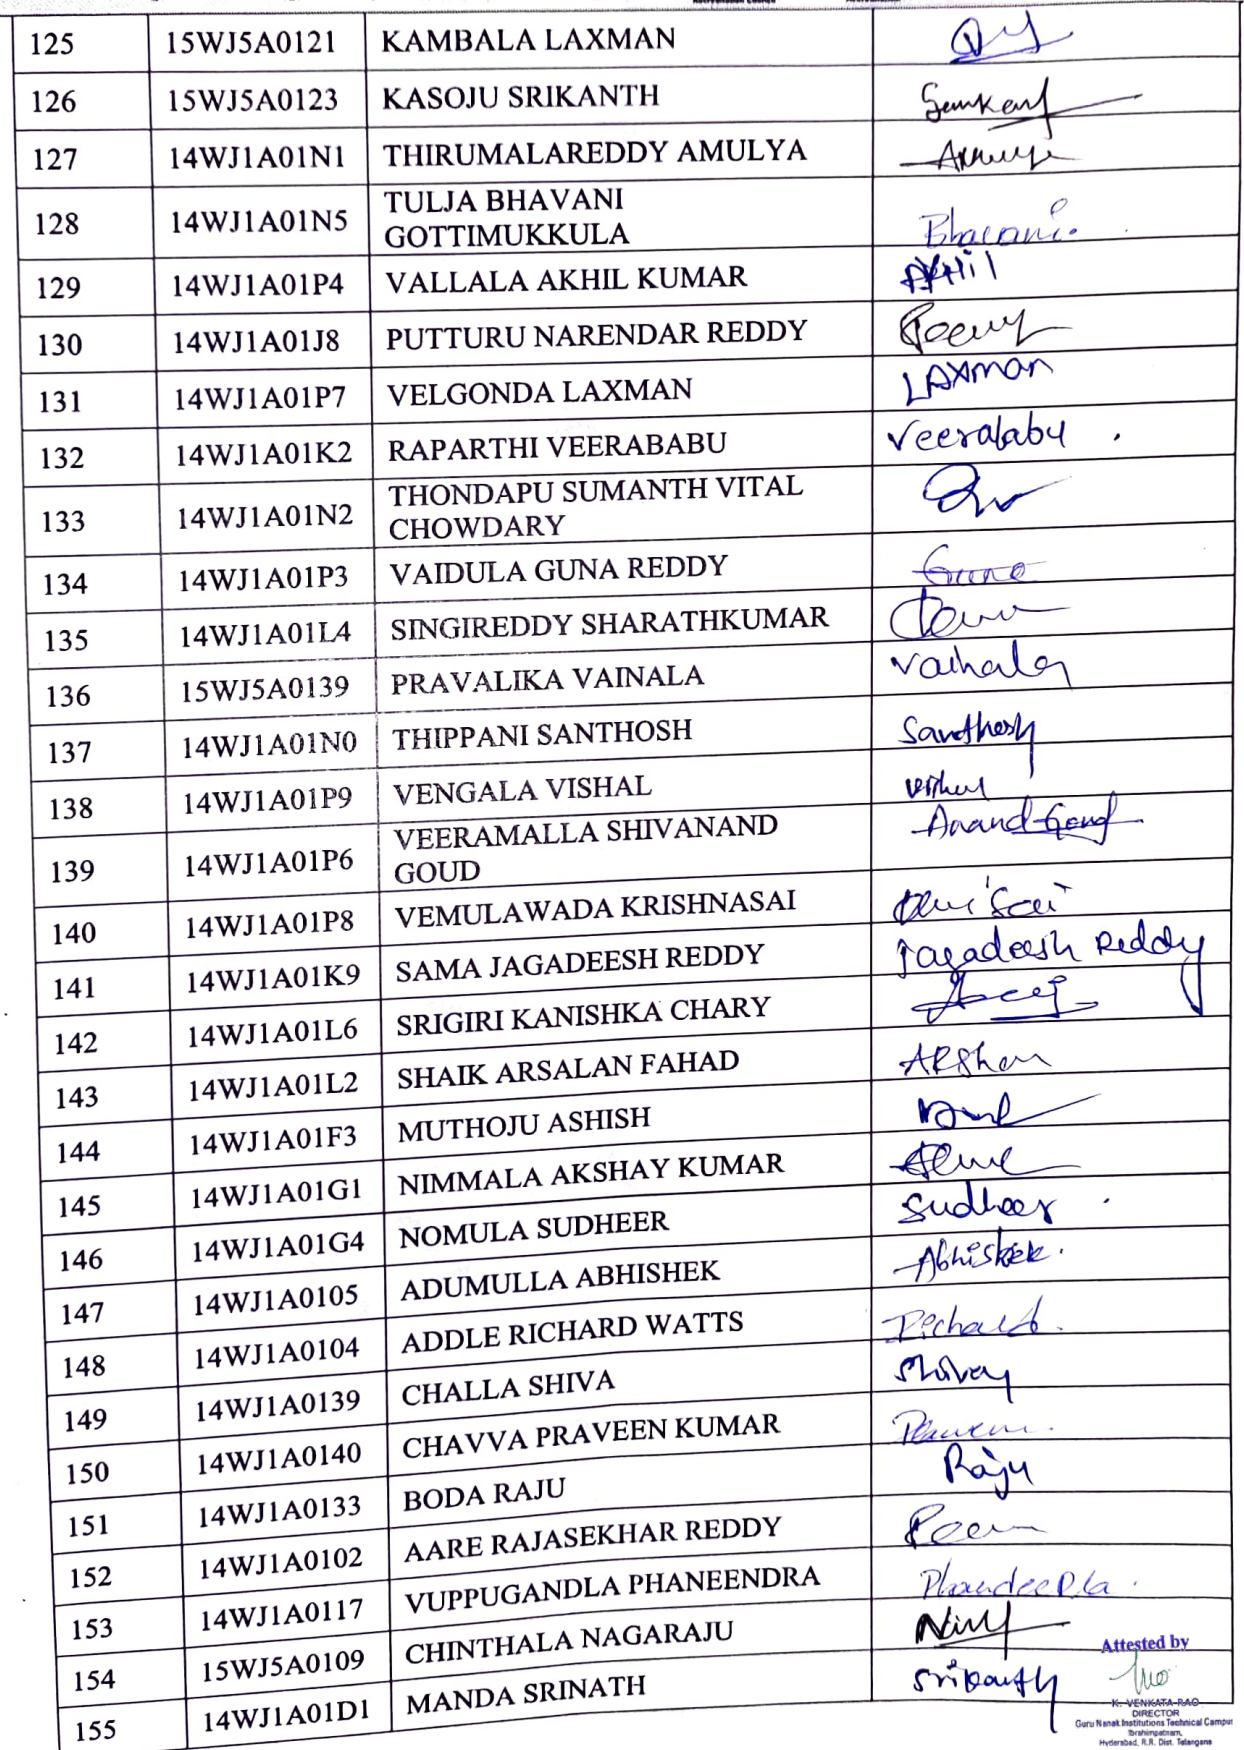 125 15WJ5A0121 KAMBALA LAXMAN
126 15WJ5A0123 KASOJU SRIKANTH
127 14WJ1A01N1 THIRUMALAREDDY AMULYA
128 14WJ1A01N5 TULJA BHAVANI
GOTTIMUKKULA Bhavani
129 14WJ1A01P4 VALLALA AKHIL KUMAR AKHIL
130 14WJ1A01J8 PUTTURU NARENDAR REDDY
131 14WJ1A01P7 VELGONDA LAXMAN LAXman
132 14WJ1A01K2 RAPARTHI VEERABABU Veerababu
133 14WJ1A01N2 THONDAPU SUMANTH VITAL
CHOWDARY
134 14WJ1A01P3 VAIDULA GUNA REDDY Guna
135 14WJ1A01L4 SINGIREDDY SHARATHKUMAR
136 15WJ5A0139 PRAVALIKA VAINALA
137 14WJ1A01N0 THIPPANI SANTHOSH Santhosh
138 14WJ1A01P9 VENGALA VISHAL
139 14WJ1A01P6 VEERAMALLA SHIVANAND
GOUD Anand Goud
140 14WJ1A01P8 VEMULAWADA KRISHNASAI
141 14WJ1A01K9 SAMA JAGADEESH REDDY Jagadeesh Reddy
142 14WJ1A01L6 SRIGIRI KANISHKA CHARY
143 14WJ1A01L2 SHAIK ARSALAN FAHAD
144 14WJ1A01F3 MUTHOJU ASHISH
145 14WJ1A01G1 NIMMALA AKSHAY KUMAR
146 14WJ1A01G4 NOMULA SUDHEER Sudheer
147 14WJ1A0105 ADUMULLA ABHISHEK Abhishek.
148 14WJ1A0104 ADDLE RICHARD WATTS Richard.
149 14WJ1A0139 CHALLA SHIVA
150 14WJ1A0140 CHAVVA PRAVEEN KUMAR
151 14WJ1A0133 BODA RAJU Raju
152 14WJ1A0102 AARE RAJASEKHAR REDDY
153 14WJ1A0117 VUPPUGANDLA PHANEENDRA
154 15WJ5A0109 CHINTHALA NAGARAJU
155 14WJ1A01D1 MANDA SRINATH
Attested by
K. VENKATA RAO
DIRECTOR
Guru Nanak Institutions Technical Campus
Ibrahimpatnam,
Hyderabad, R.R. Dist. Telangana